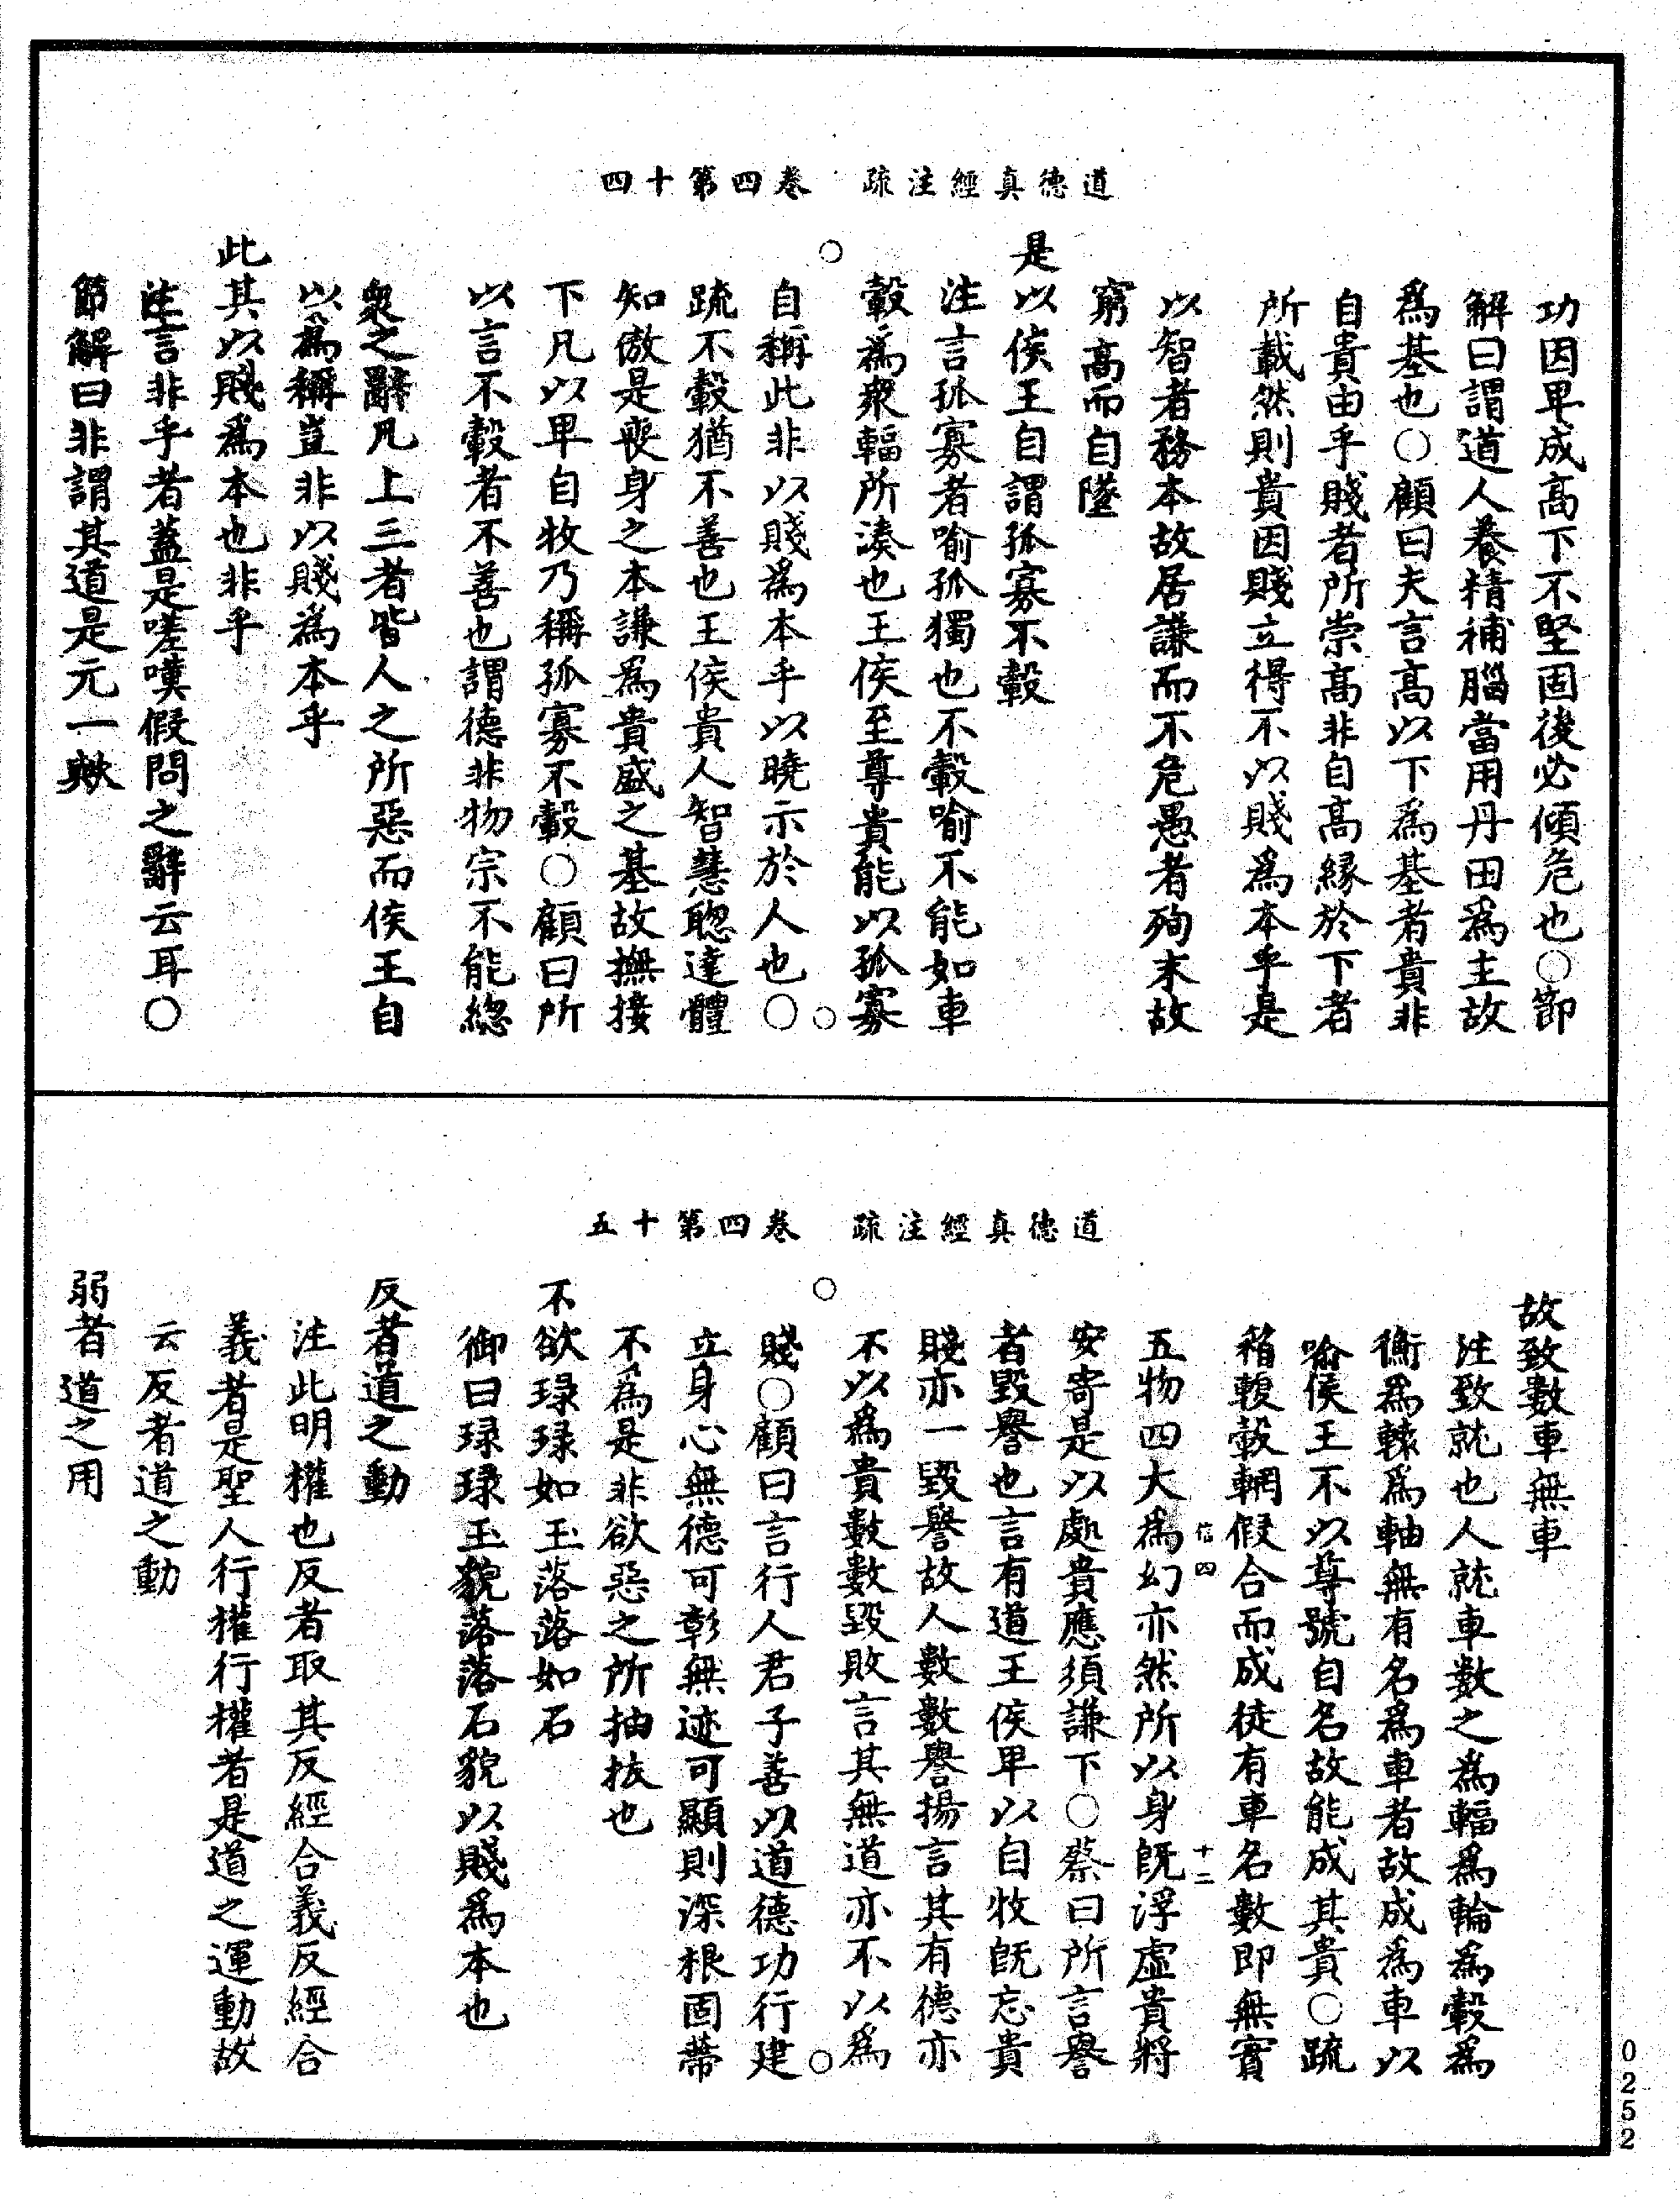 道德真經注疏　卷四第十四
功因卑成高下不堅固後必傾危也○節
解曰謂道人養精補腦當用丹田爲主故
爲基也○顧曰夫言高以下爲基者貴非
自貴由乎賤者所崇高非自高緣於下者
所載然則貴因賤立得不以賤爲本乎是
以智者務本故居謙而不危愚者殉末故
窮高而自墜
是以侯王自謂孤寡不轂
注言孤寡者喻孤獨也不轂喻不能如車
轂爲衆輻所湊也王侯至尊貴能以孤寡
自稱此非以賤爲本乎以曉示於人也○
疏不轂猶不善也王侯貴人智慧聰達體
知傲是喪身之本謙爲貴盛之基故撫接
下凡以卑自牧乃稱孤寡不轂○顧曰所
以言不轂者不善也謂德非物宗不能總
衆之辭凡上三者皆人之所惡而侯王自
以爲稱豈非以賤爲本乎
此其以賤爲本也非乎
注言非乎者蓋是嗟嘆假問之辭云耳○
節解曰非謂其道是元一歟
道德真經注疏　卷四第十五
故致數車無車
注致就也人就車數之爲輻爲輪爲轂爲
衡爲轅爲軸無有名爲車者故成爲車以
喻侯王不以尊號自名故能成其貴○疏
箱輹轂輞假合而成徒有車名數即無實
五物四大爲幻亦然所以身旣浮虛貴將
安寄是以處貴應須謙下○蔡曰所言譽
者毀譽也言有道王侯卑以自牧旣忘貴
賤亦一毀譽故人數數譽揚言其有德亦
不以爲貴數數毀敗言其無道亦不以爲
賤○顧曰言行人君子善以道德功行建
立身心無德可彰無迹可顯則深根固蔕
不爲是非欲惡之所抽拔也
不欲琭琭如玉落落如石
御曰琭琭玉貌落落石貌以賤爲本也
反者道之動
注此明權也反者取其反經合義反經合
義者是聖人行權行權者是道之運動故
云反者道之動
弱者道之用
信四
十二
0252